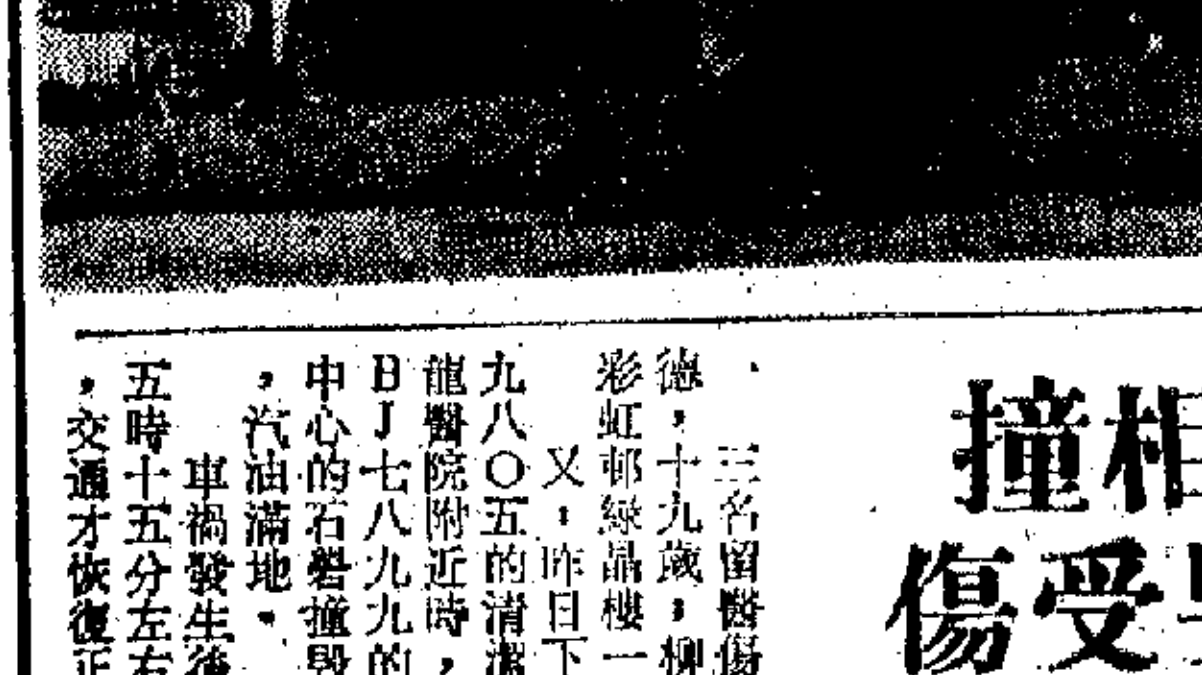 相撞
受傷
三名留醫傷
德，十九歲；柳
彩虹邨綠晶樓一
又，昨日下
九八〇五的清潔
龍醫院附近時，
BJ七八九九的
中心的石磐撞毀
，汽油滿地。
車禍發生後
五時十五分左右
，交通才恢復正